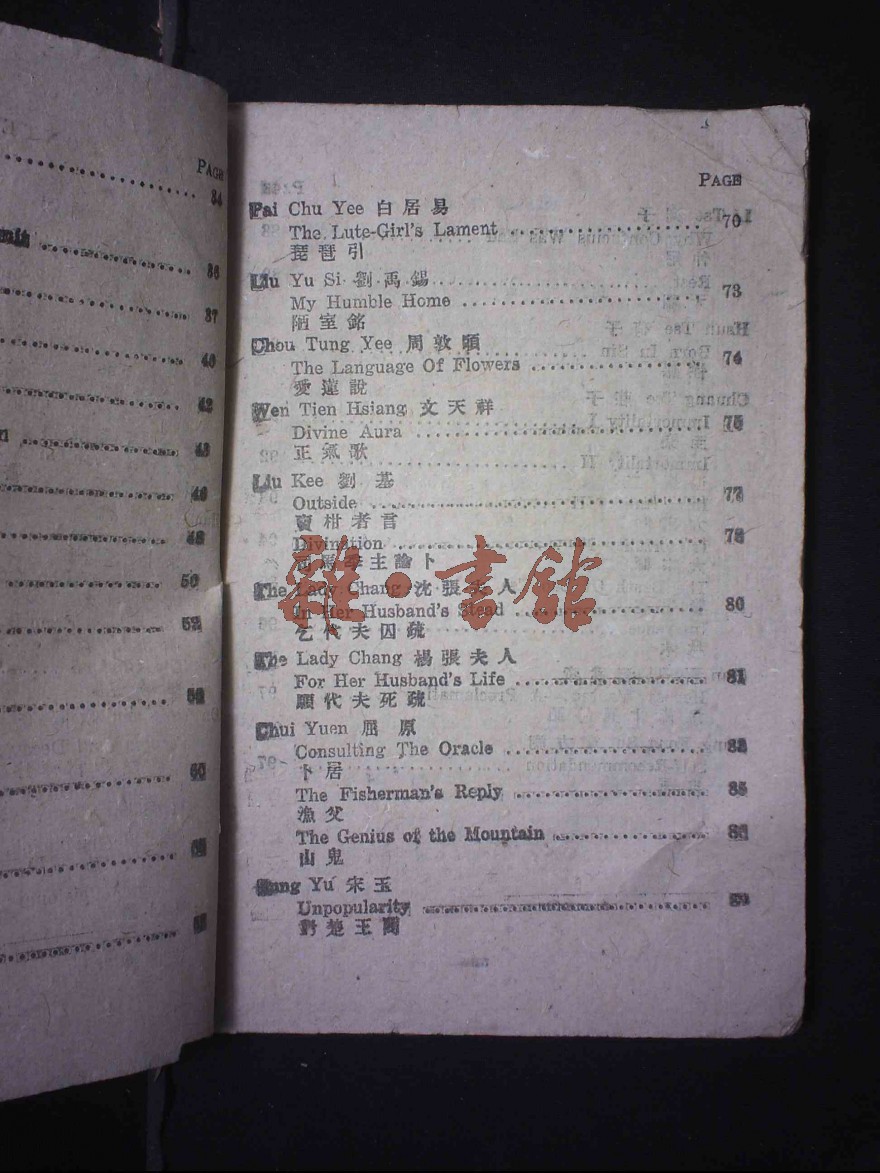 PAGE
34
36
37
40
42
43
46
48
50
52
PAGE
Pai Chu Yee 白居易
The Lute-Girl's Lament 70
琵琶引
Liu Yu Si 劉禹錫
My Humble Home 73
陋室銘
Chou Tung Yee 周敦頤
The Language Of Flowers 74
愛蓮說
Wen Tien Hsiang 文天祥
Divine Aura 75
正氣歌
Liu Kee 劉基
Outside 77
賣柑者言
Divination 78
論卜
The Lady Chang 沈張夫人
In Her Husband's Stead 80
乞代夫囚疏
The Lady Chang 楊張夫人
For Her Husband's Life 81
願代夫死疏
Chui Yuen 屈原
Consulting The Oracle
卜居
The Fisherman's Reply 85
漁父
The Genius of the Mountain
山鬼
Sung Yu 宋玉
Unpopularity
對楚王問
雜·書館